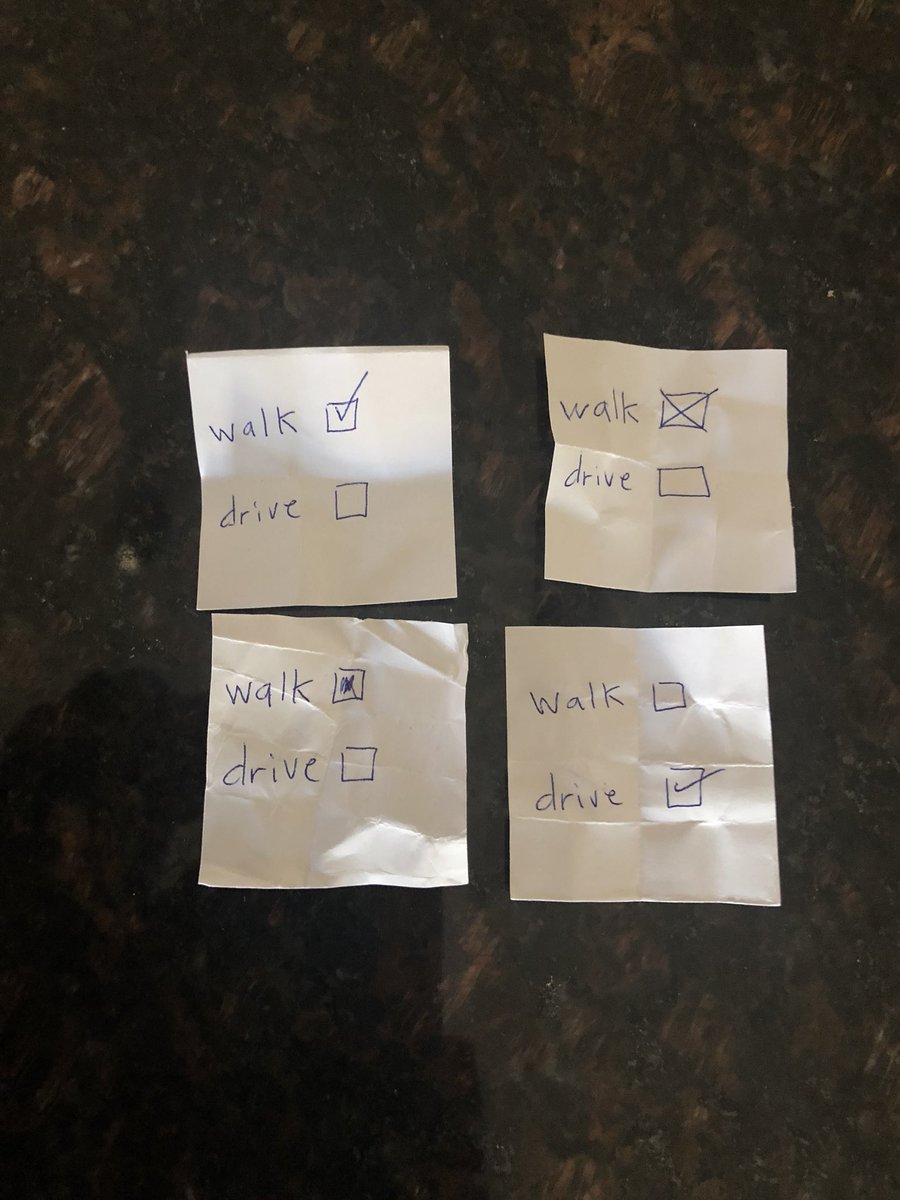 walk ☑
drive ☐
walk ☒
drive ☐
walk ☒
drive ☐
walk ☐
drive ☑